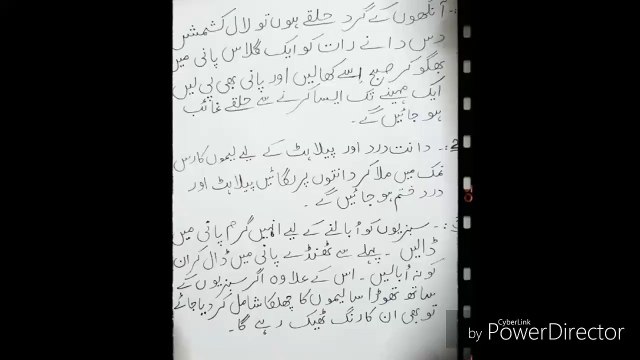 :- آنکھوں کے گرد حلقے ہوں تو لال کشمش
دس دانے رات کو ایک گلاس پانی میں
بھگو کر صبح اسے کھالیں اور پانی بھی پی لیں
ایک مہینے تک ایسا کرنے سے حلقے غائب
ہو جائیں گے۔
2:- دانت درد اور پیلاہٹ کے لیے لیموں کا رس
نمک میں ملا کر دانتوں پر رگائیں پیلاہٹ اور
درد ختم ہو جائیں گے۔
:- سبزیوں کو اُبالنے کے لیے انہیں گرم پانی میں
ڈالیں۔ پہلے سے ٹھنڈے پانی میں ڈال کر ان
کو نہ اُبالیں۔ اس کے علاوہ اگر سبزیوں کے
ساتھ تھوڑا سا لیموں کا چھلکا شامل کر دیا جائے
تو بھی ان کا رنگ ٹھیک رہے گا۔
CyberLink
by PowerDirector